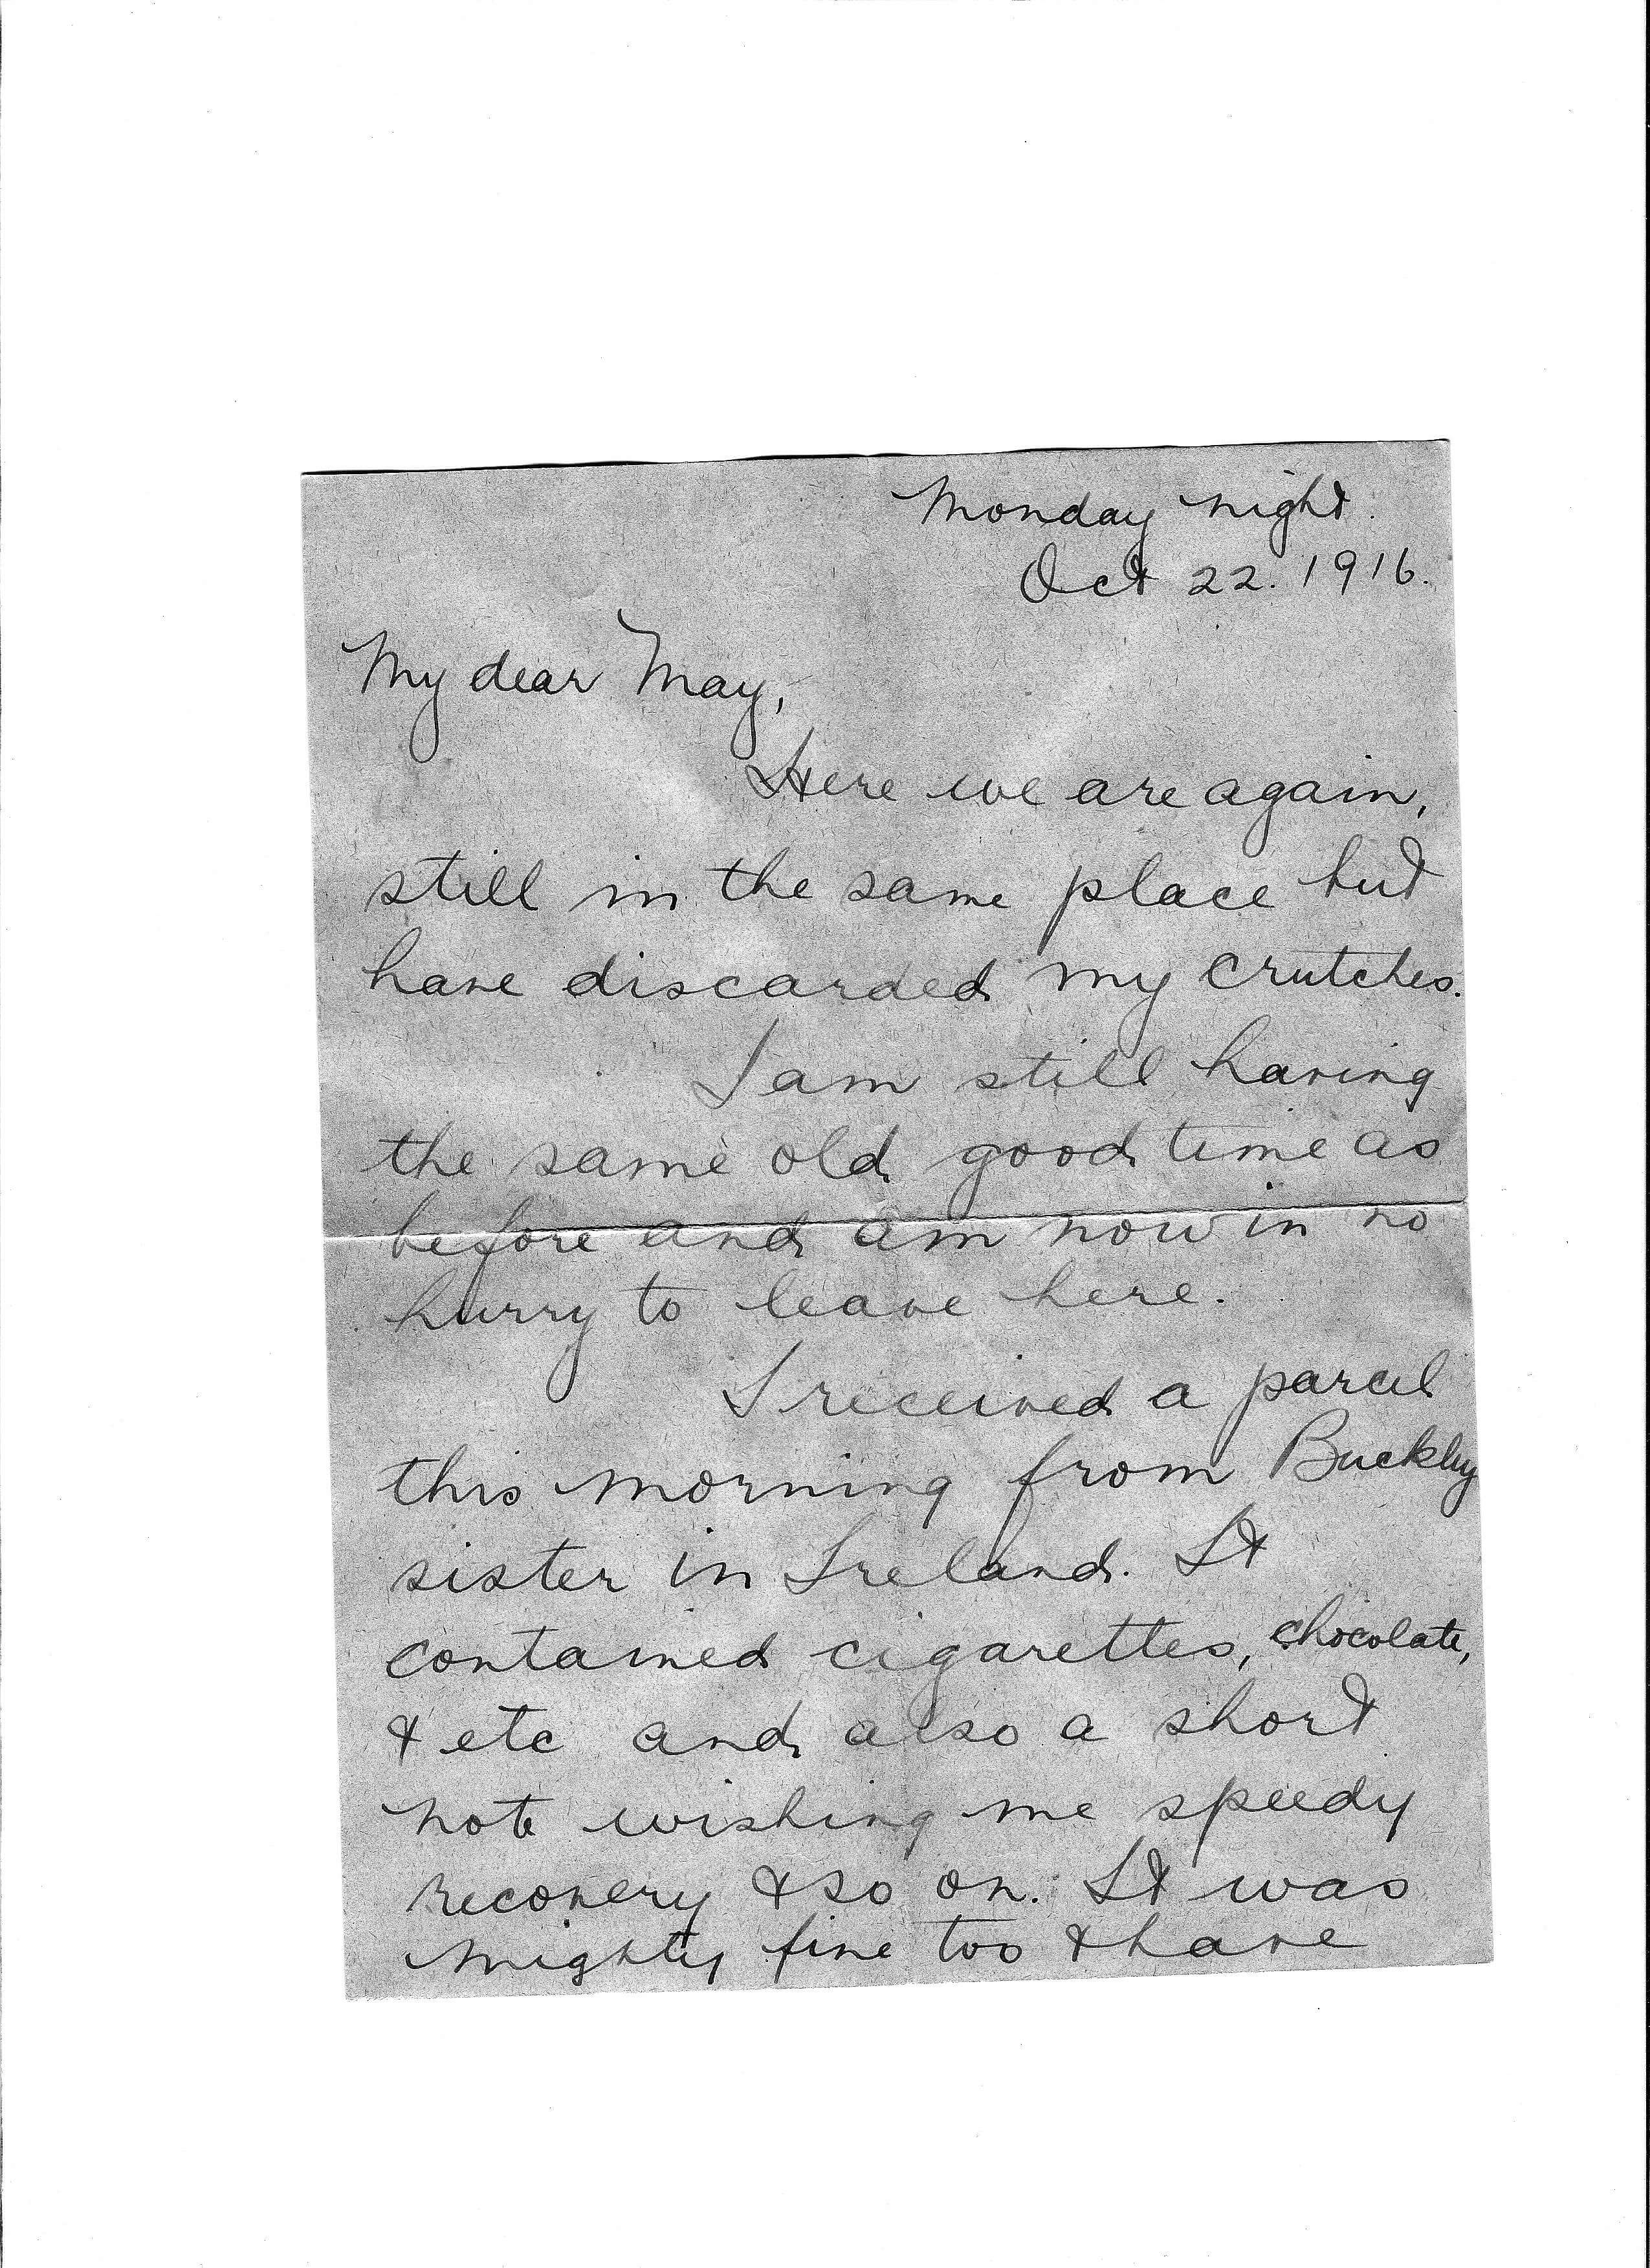 Monday night.
Oct 22. 1916.
My dear May,
Here we are again,
still in the same place but
have discarded my crutches.
I am still having
the same old good time as
before and am now in no
hurry to leave here.
I received a parcel
this morning from Buckley
sister in Ireland. It
contained cigarettes, chocolate,
& etc and also a short
note wishing me speedy
recovery & so on. It was
mighty fine too & have